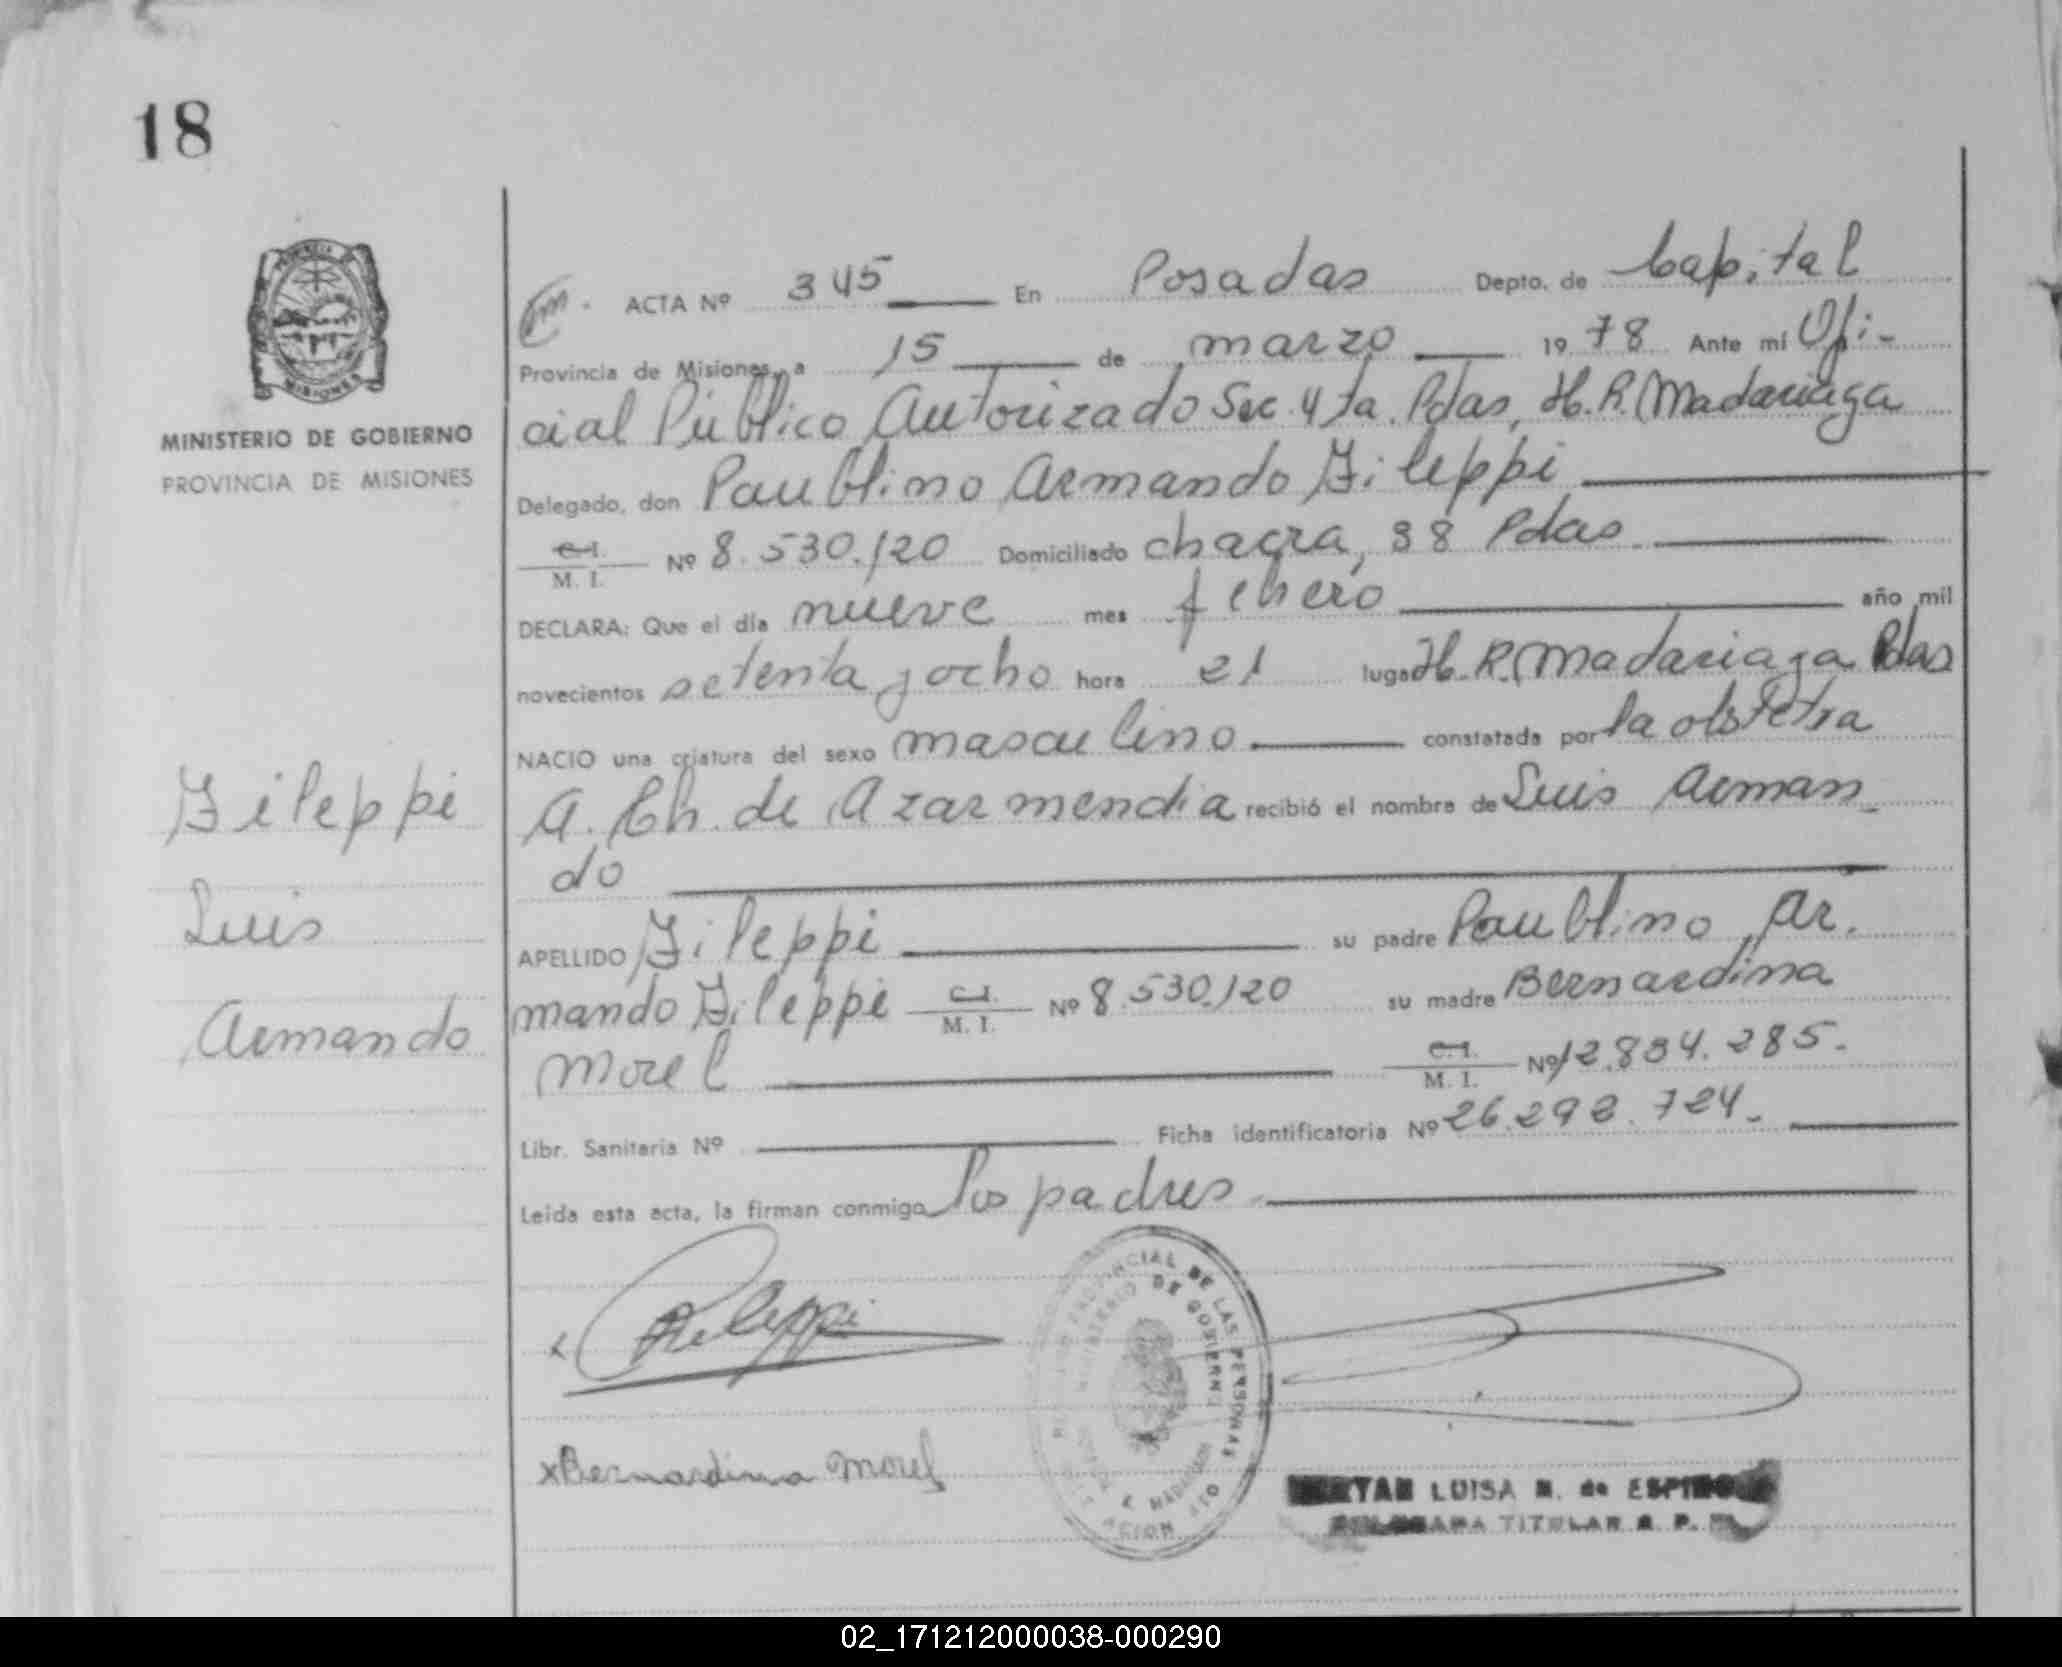 18
ACTA Nº 345 En Posadas Depto. de Capital
Provincia de Misiones, a 15 de marzo 1978 Ante mí Ofi-
cial Público Autorizado Sec. 4ta. Pdas, H. R. Madariaga
MINISTERIO DE GOBIERNO
PROVINCIA DE MISIONES
Delegado, don Paublino Armando Fileppi
C.I. M. I. Nº 8.530.120 Domiciliado chacra, 38 Pdas
DECLARA: Que el día nueve mes febrero año mil
novecientos setenta y ocho hora 21 lugar H. R. Madariaga Pdas
NACIO una criatura del sexo masculino constatada por la obstetra
A. Ch. de Azarmendia recibió el nombre de Luis Arman-
do
Fileppi
Luis
Armando
APELLIDO Fileppi su padre Paublino Ar-
mando Fileppi C.I. M. I. Nº 8.530.120 su madre Bernardina
Morel C.I. M. I. Nº 12.834.285.
Libr. Sanitaria Nº Ficha identificatoria Nº 26.292.724.
Leída esta acta, la firman conmigo los padres
x Fileppi
PROVINCIAL DE LAS PERSONAS
MINISTERIO DE GOBIERNO
x Bernardina Morel
LUISA M. de
TITULAR R. P.
02_171212000038-000290